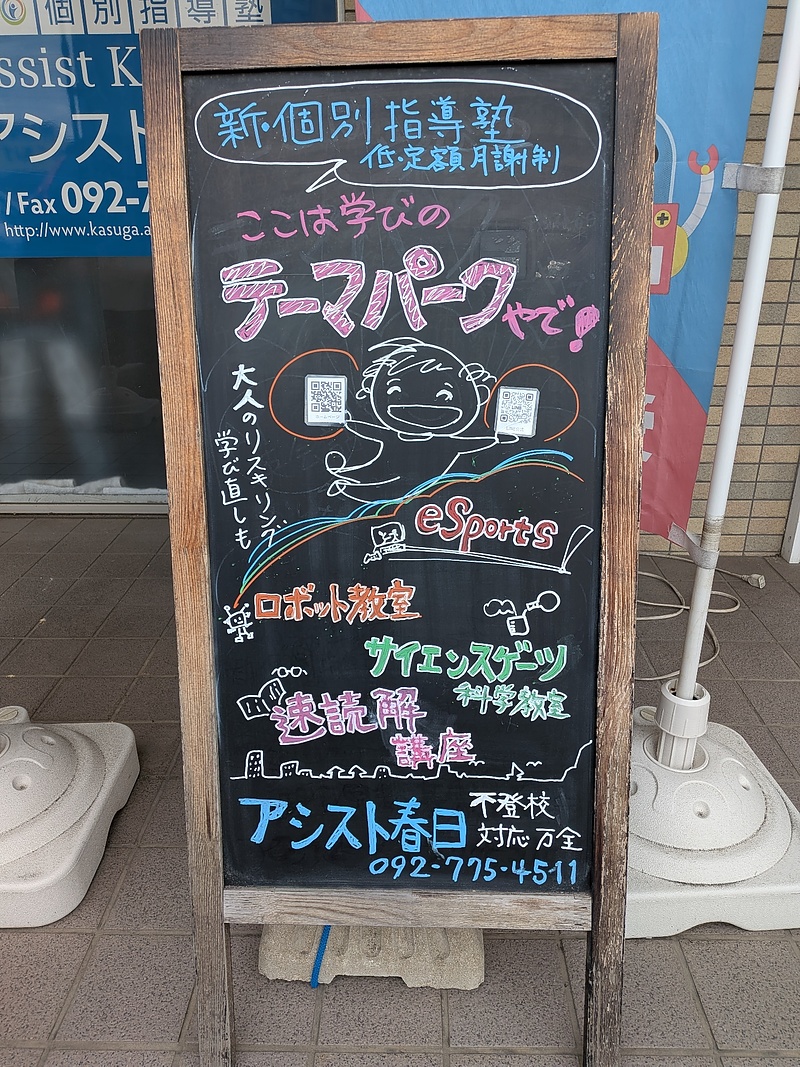 個別指導塾
ssist K
アシスト
/ Fax 092-7
http://www.kasuga.a
新・個別指導塾
低・定額月謝制
ここは学びの
テーマパーク
やで!
大人のリスキリング
学び直しも
ホームページ
eSports
ロボット教室
サイエンスゲーツ
科学教室
速読解
講座
アシスト春日
不登校
対応万全
092-775-4511